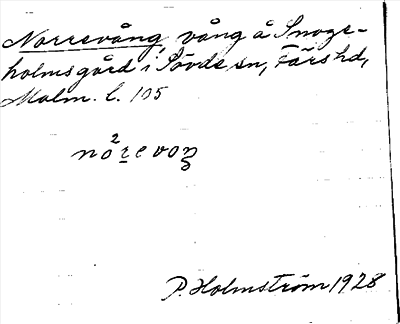 Norrevång, vång å Snoge-
holmsgård i Sövde sn, Färs hd,
Malm. l. 105
no²revoŋ
P. Holmström 1928